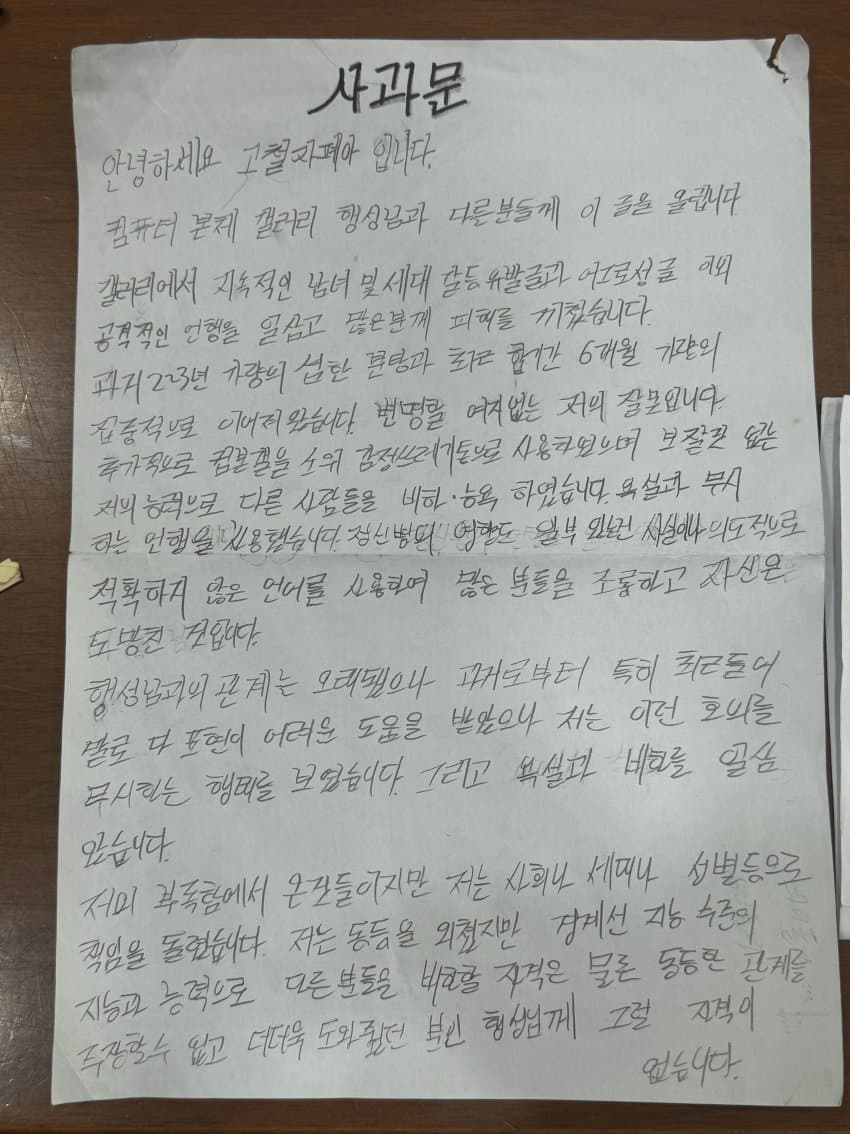 사과문
안녕하세요 고철자폐아 입니다.
컴퓨터 본체 갤러리 행성님과 다른분들께 이 글을 올립니다
갤러리에서 지속적인 남녀 및 세대 갈등유발글과 어그로성글 이외
공격적인 언행을 일삼고 많은분께 피해를 끼쳤습니다.
과거 2~3년 가량의 심한 분탕과 최근 합기간 6개월 가량의
집중적으로 이어져왔습니다. 변명할 여지없는 저의 잘못입니다.
추가적으로 컴본갤을 소위 감정쓰레기통으로 사용하였으며 보잘것 없는
저의 능력으로 다른 사람들을 비하·능욕 하였습니다. 욕설과 무시
하는 언행을 사용했습니다. 정신병의 영향도 일부 있는건 사실이나 의도적으로
적확하지 않은 언어를 사용하여 많은 분들을 조롱하고 자신은
도망친 것입니다.
행성님과의 관계는 오래됐으나 과거로부터 특히 최근들어
말로 다 표현이 어려운 도움을 받았으나 저는 이런 호의를
무시하는 행태를 보였습니다. 그리고 욕설과 비하를 일삼
았습니다.
저의 부족함에서 온것들이지만 저는 사회나 세대나 성별등으로
책임을 돌렸습니다. 저는 동등을 외쳤지만 경계선 지능 수준의
지능과 능력으로 다른분들을 비하할 자격은 물론 동등한 관계를
주장할수 없고 더더욱 도와줬던 행성님께 그럴 자격이
없습니다.